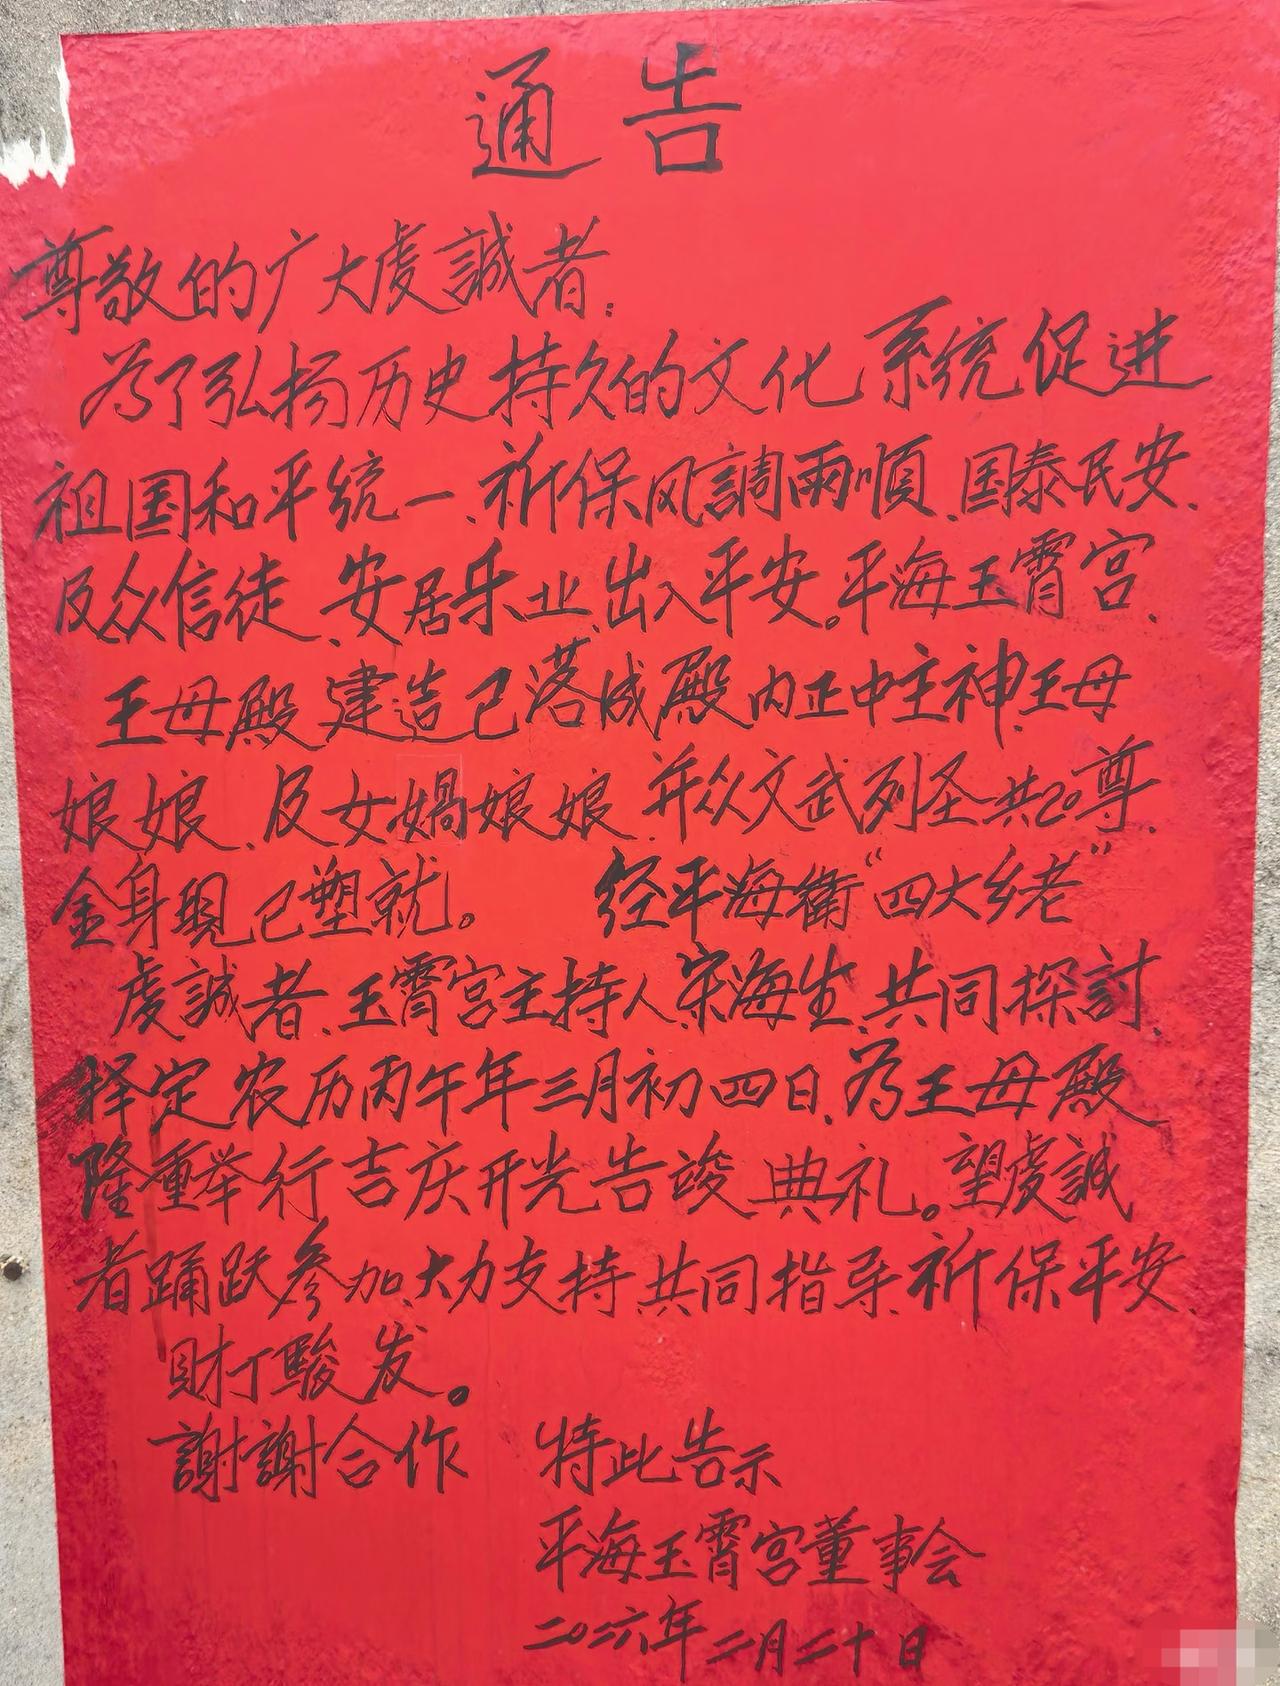 通告
尊敬的广大虔誠者：
為了弘扬历史持久的文化系統促进
祖国和平统一、祈保风調雨順、国泰民安、
及众信徒、安居乐业、出入平安。平海玉霄宫、
王母殿建造已落成殿内正中主神、王母
娘娘、及女媧娘娘、并众文武列圣共20尊、
金身現已塑就。 经平海衛“四大乡老”
虔誠者、玉霄宫主持人宋海生、共同探討、
择定农历丙午年三月初四日、為王母殿
隆重举行吉庆开光告竣典礼。望虔誠
者踊跃參加、大力支持、共同指导、祈保平安、
財丁駿发。
謝謝合作 特此告示
平海玉霄宫董事会
二〇二六年二月二十日